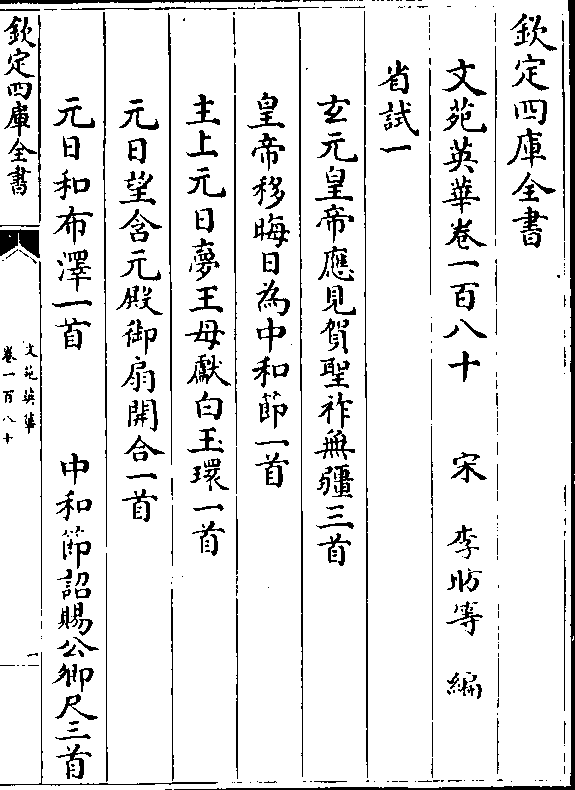 欽定四庫全書
文苑英華卷一百八十　宋　李昉等　編
省試一
玄元皇帝應見賀聖祚無疆三首
皇帝移晦日為中和節一首
主上元日夢王母獻白玉環一首
元日望含元殿御扇開合一首
元日和布澤一首　中和節詔賜公卿尺三首
欽定四庫全書
文苑英華
卷一百八十
一